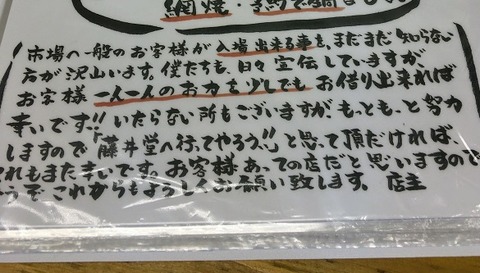 網焼・
市場へ一般のお客様が入場出来る事も、まだまだ知らない
方が沢山います。僕たちも、日々宣伝していますが、
お客様一人一人のお力を少しでもお借り出来れば
幸いです!!いたらない所もございますが、もっと、もっと努力
しますので「藤井堂へ行ってやろう!!」と思って頂だければ、
それもまた幸いです。お客様あっての店だと思いますので
どうぞこれからもよろしくお願い致します。店主